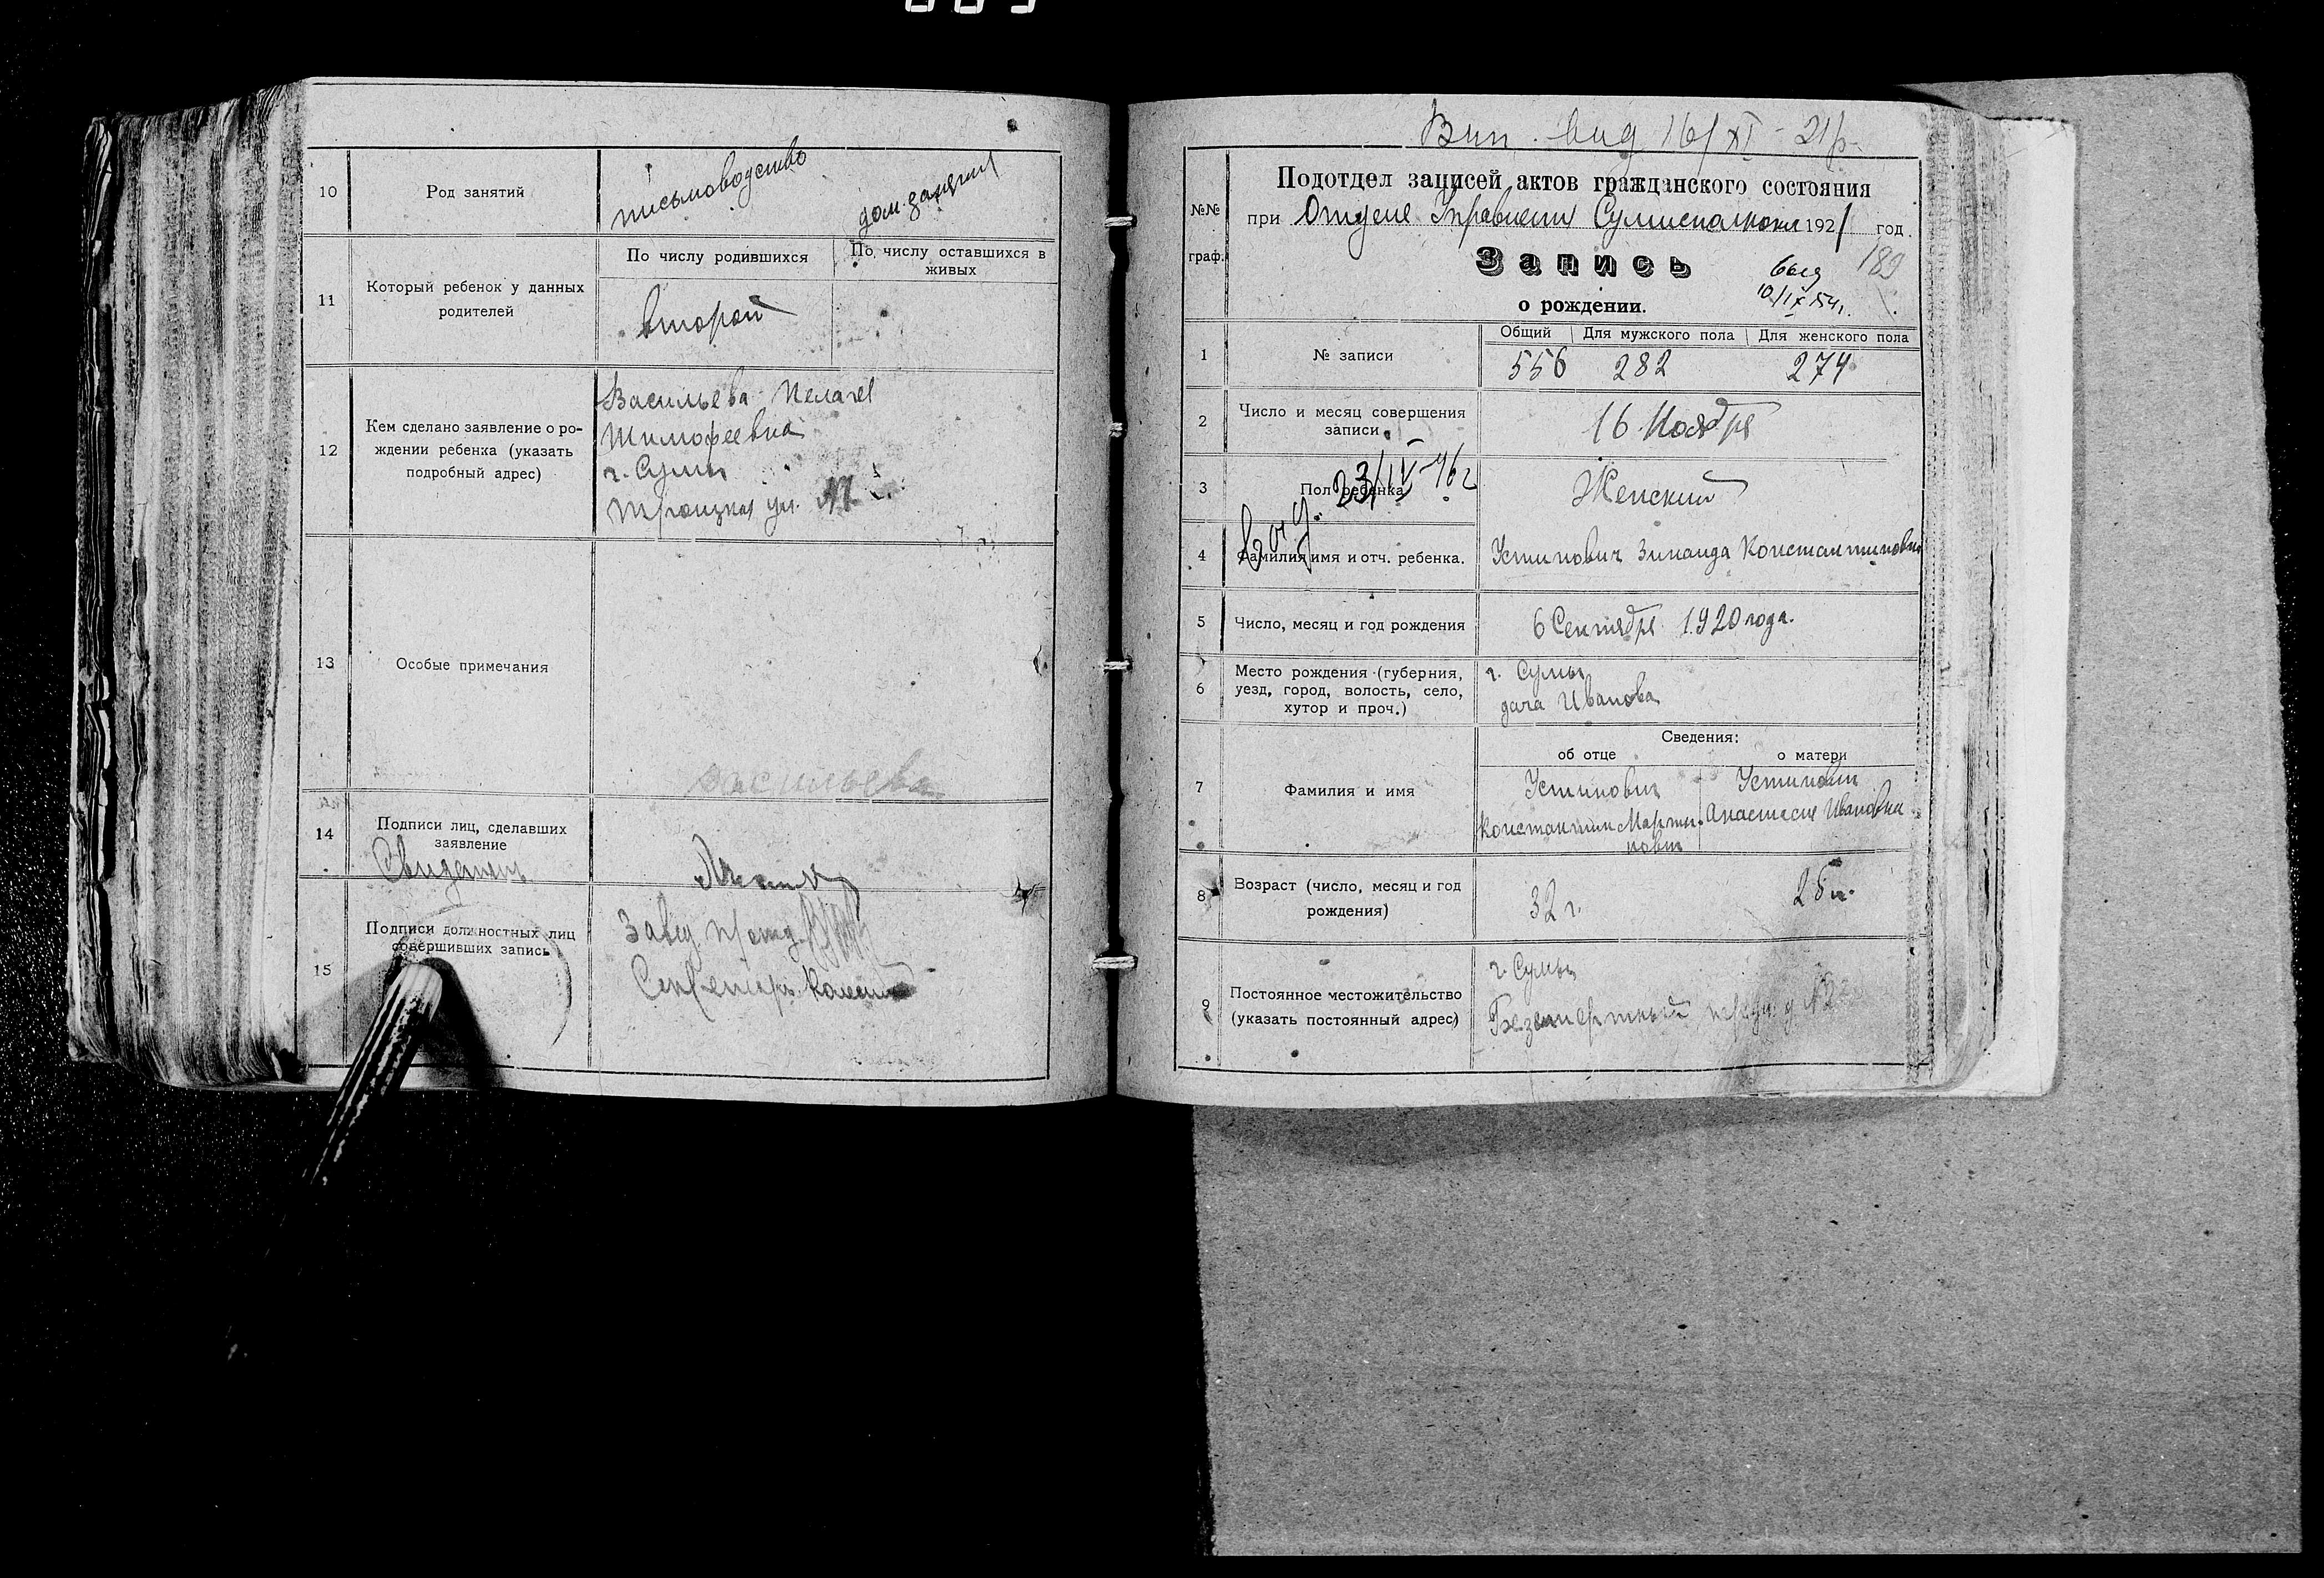 10
Род занятий
письмоводство
дом. занятия
11
Который ребенок у данных
родителей
По числу родившихся
По числу оставшихся в
живых
второй
12
Кем сделано заявление о ро-
ждении ребенка (указать
подробный адрес)
Васильева Пелагея
Тимофеевна
г. Сумы
Троицкая ул.
13
Особые примечания
Васильева
14
Подписи лиц, сделавших
заявление
Свидетель
15
Подписи должностных лиц
совершивших запись
Завед.
Секретарь
Вип. вид 16/XI - 21р.
Подотдел записей актов гражданского состояния
№№
граф.
при Отделе Управлении 1921 год.
Запись
о рождении.
189
10/IX 54
1
№ записи
Общий
Для мужского пола
Для женского пола
556
282
274
2
Число и месяц совершения
записи
16 Ноября
3
Пол ребенка
23/IV-46г
Женский
4
Фамилия имя и отч. ребенка.
Устинович Зинаида Константиновна
5
Число, месяц и год рождения
6 Сентября 1920 года.
6
Место рождения (губерния,
уезд, город, волость, село,
хутор и проч.)
г. Сумы
дача Иванова
7
Фамилия и имя
Сведения:
об отце
о матери
Устинович
Константин Марти-
нович
Устинович
Анастасия Ивановна
8
Возраст (число, месяц и год
рождения)
32 г.
9
Постоянное местожительство
(указать постоянный адрес)
г. Сумы